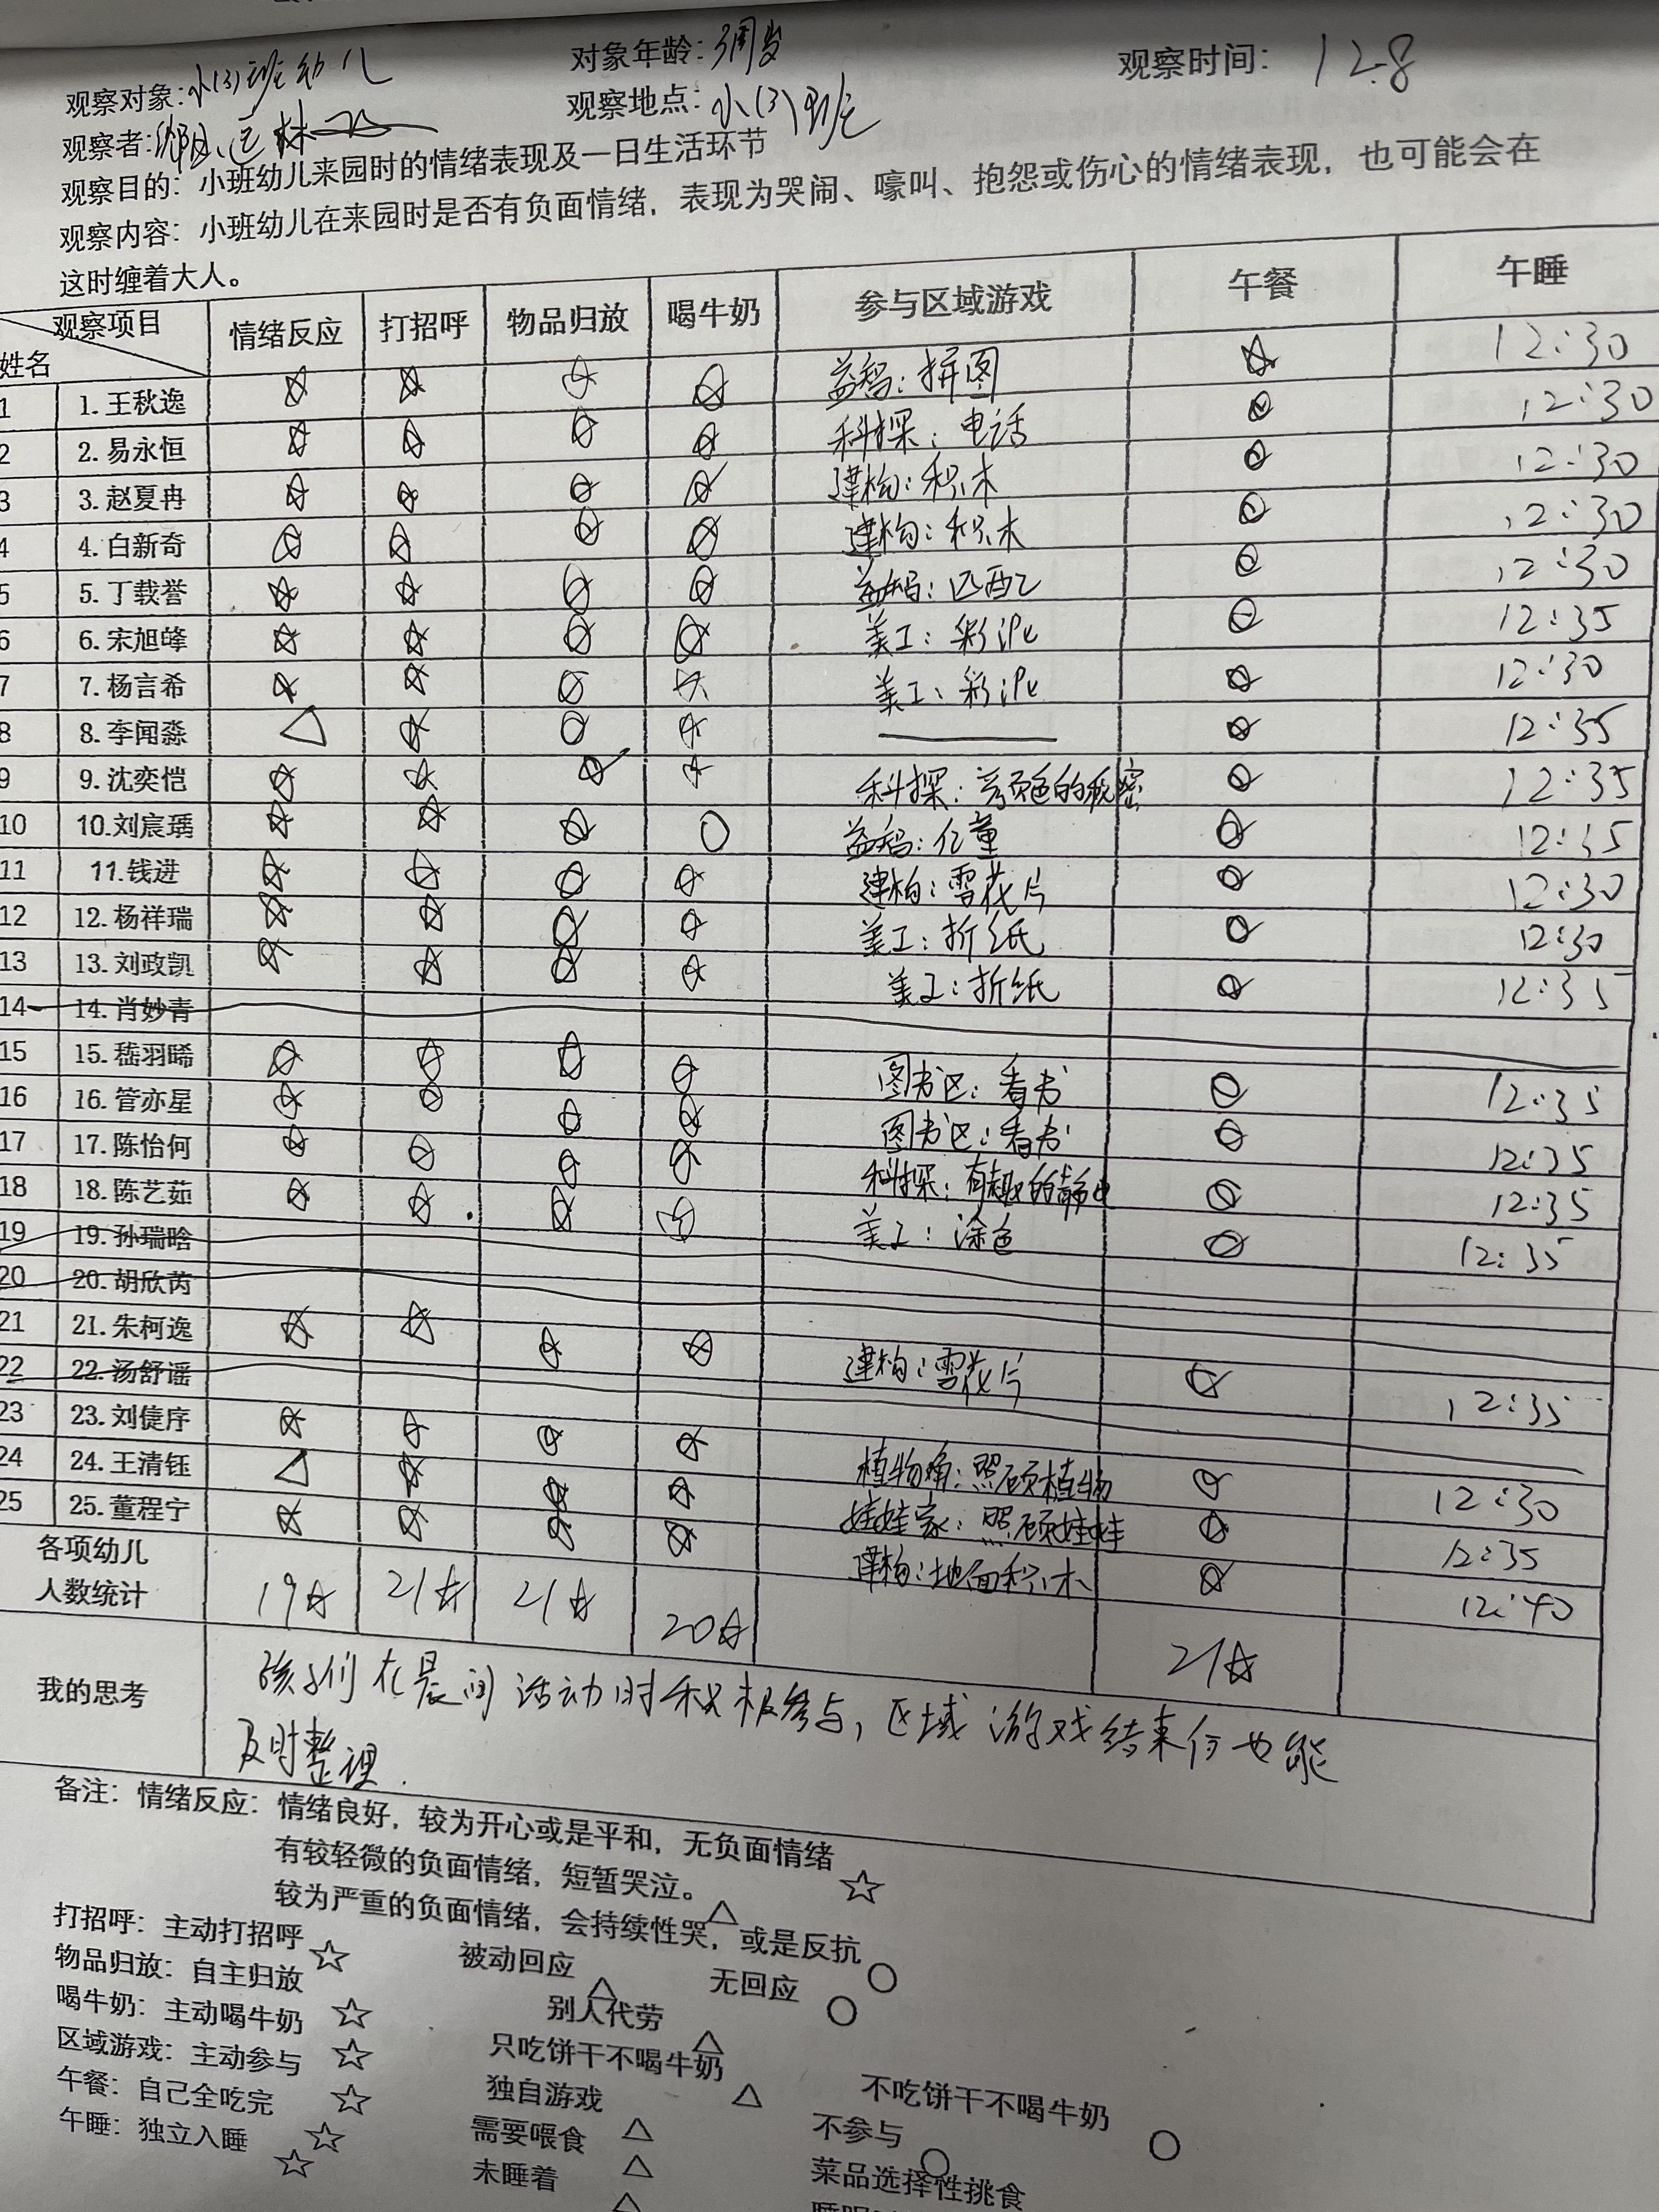 观察对象:小(3)班幼儿 对象年龄:3周岁 观察时间: 12.8
观察者: 观察地点:小(3)班
观察目的：小班幼儿来园时的情绪表现及一日生活环节
观察内容：小班幼儿在来园时是否有负面情绪，表现为哭闹、嚎叫、抱怨或伤心的情绪表现，也可能会在
这时缠着大人。
观察项目 姓名 情绪反应 打招呼 物品归放 喝牛奶 参与区域游戏 午餐 午睡
1 1.王秋逸 ☆ ☆ ☆ ☆ 益智：拼图 ☆ 12:30
2 2.易永恒 ☆ ☆ ☆ ☆ 科探：电话 ☆ 12:30
3 3.赵夏冉 ☆ ☆ ☆ ☆ 建构：积木 ☆ 12:30
4 4.白新奇 ☆ ☆ ☆ ☆ 建构：积木 ☆ 12:30
5 5.丁载誉 ☆ ☆ ☆ ☆ 益智：匹配 ☆ 12:30
6 6.宋旭峰 ☆ ☆ ☆ ☆ 美工：彩泥 ☆ 12:35
7 7.杨言希 ☆ ☆ ☆ ☆ 美工：彩泥 ☆ 12:30
8 8.李闻淼 △ ☆ ☆ ☆ — ☆ 12:35
9 9.沈奕恺 ☆ ☆ ☆ ☆ 科探：颜色的秘密 ☆ 12:35
10 10.刘宸瑀 ☆ ☆ ☆ ○ 益智：亿童 ☆ 12:35
11 11.钱进 ☆ ☆ ☆ ☆ 建构：雪花片 ☆ 12:30
12 12.杨祥瑞 ☆ ☆ ☆ ☆ 美工：折纸 ☆ 12:30
13 13.刘政凯 ☆ ☆ ☆ ☆ 美工：折纸 ☆ 12:35
14 14.肖妙青
15 15.嵇羽晞 ☆ ☆ ☆ ☆ 图书区：看书 ☆ 12:35
16 16.管亦星 ☆ ☆ ☆ ☆ 图书区：看书 ☆ 12:35
17 17.陈怡何 ☆ ☆ ☆ ☆ 科探：有趣的静电 ☆ 12:35
18 18.陈艺茹 ☆ ☆ ☆ ☆ 美工：涂色 ☆ 12:35
19 19.孙瑞晗
20 20.胡欣芮
21 21.朱柯逸 ☆ ☆ ☆ ☆ 建构：雪花片 ☆ 12:35
22 22.汤舒谣
23 23.刘倢序 ☆ ☆ ☆ ☆ 植物角：照顾植物 ☆ 12:30
24 24.王清钰 △ ☆ ☆ ☆ 娃娃家：照顾娃娃 ☆ 12:35
25 25.董程宁 ☆ ☆ ☆ ☆ 建构：地面积木 ☆ 12:40
各项幼儿
人数统计 19☆ 21☆ 21☆ 20☆ 21☆
我的思考 孩子们在晨间活动时积极参与，区域游戏结束后也能
及时整理.
备注：情绪反应：情绪良好，较为开心或是平和，无负面情绪 ☆
有较轻微的负面情绪，短暂哭泣。 △
较为严重的负面情绪，会持续性哭，或是反抗 ○
打招呼：主动打招呼 ☆ 被动回应 △ 无回应 ○
物品归放：自主归放 ☆ 别人代劳 △
喝牛奶：主动喝牛奶 ☆ 只吃饼干不喝牛奶 △ 不吃饼干不喝牛奶 ○
区域游戏：主动参与 ☆ 独自游戏 △ 不参与 ○
午餐：自己全吃完 ☆ 需要喂食 △ 菜品选择性挑食
午睡：独立入睡 ☆ 未睡着 △